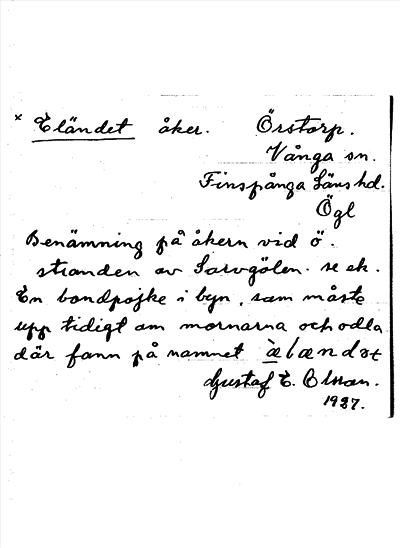 × Eländet åker. Örstorp.
Vånga sn.
Finspånga läns hd.
Ögl
Benämning på åkern vid ö.
stranden av Sarvgölen. se ek.
En bondpojke i byn, som måste
upp tidigt om mornarna och odla
där fann på namnet
Gustaf E. Olsson.
1927.